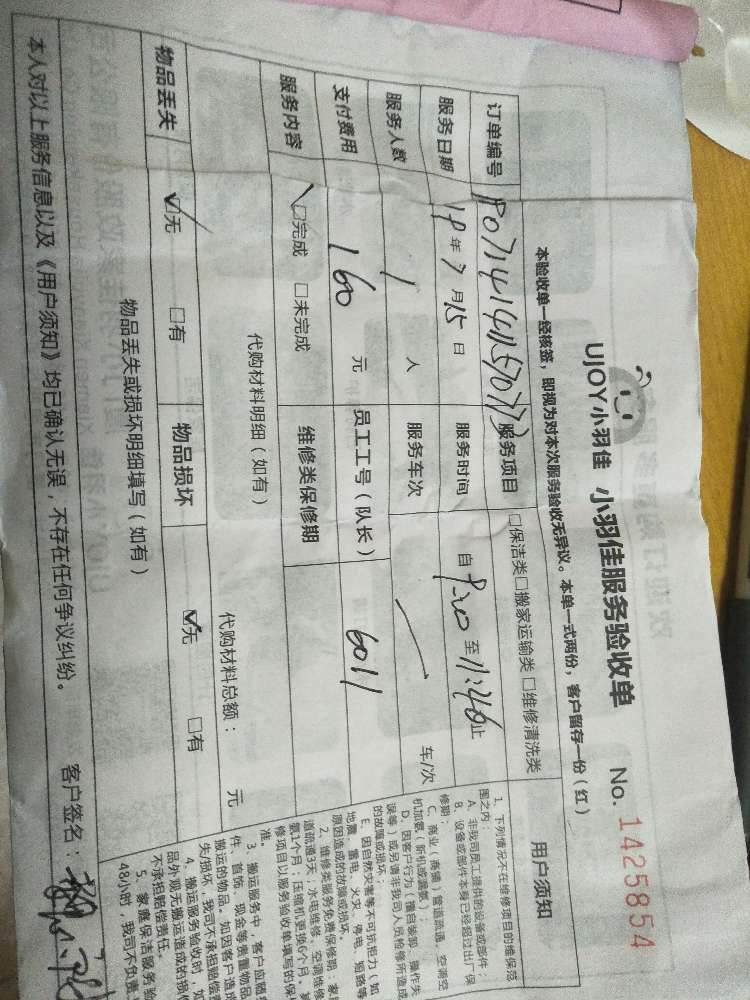 UJOY小羽佳 小羽佳服务验收单 No. 1425854
本验收单一经核签，即视为对本次服务验收无异议。本单一式两份，客户留存一份（红）
订单编号 服务项目 □保洁类□搬家运输类□维修清洗类
服务日期 19年7月15日 服务时间 自 9:30 至 11:46 止
服务人数 1 人 服务车次 车/次
支付费用 160 元 员工工号（队长） 6011
服务内容 □完成 □未完成 维修类保修期
代购材料明细（如有） 代购材料总额： 元
物品丢失 ☑无 □有 物品损坏 ☑无 □有
物品丢失或损坏明细填写（如有）
本人对以上服务信息以及《用户须知》均已确认无误，不存在任何争议纠纷。 客户签名：
用户须知
1、下列情况不在维修项目的维保范
围之内：
A、非我司员工提供的设备或部件；
B、设备或部件本身已经超过出厂保
修期；
C、商业（商铺）管道疏通、空调空
机加氨（新机或漏氨）；
D、因客户行为（擅自装卸、操作失
误等）或另请非我司人员检修所造成
的故障或损坏；
E、因自然灾害等不可抗拒力（如
地震、雷电、火灾、停电、短路等
原因造成的故障或损坏。
2、维修类服务免费保修期：家
道疏通3天；水电维修、空调维修
氨1个月；压缩机更换6个月，其
修项目以服务验收单填写的保
准。
3、搬运服务中，客户应随
件、首饰、现金等贵重物品
搬运的物品，如因客户造成
失/损坏，我司不承担赔偿责
4、搬运服务验收时，如
品外观无搬运造成的损伤
不承担赔偿责任。
5、家庭保洁服务验
48小时，我司不负责